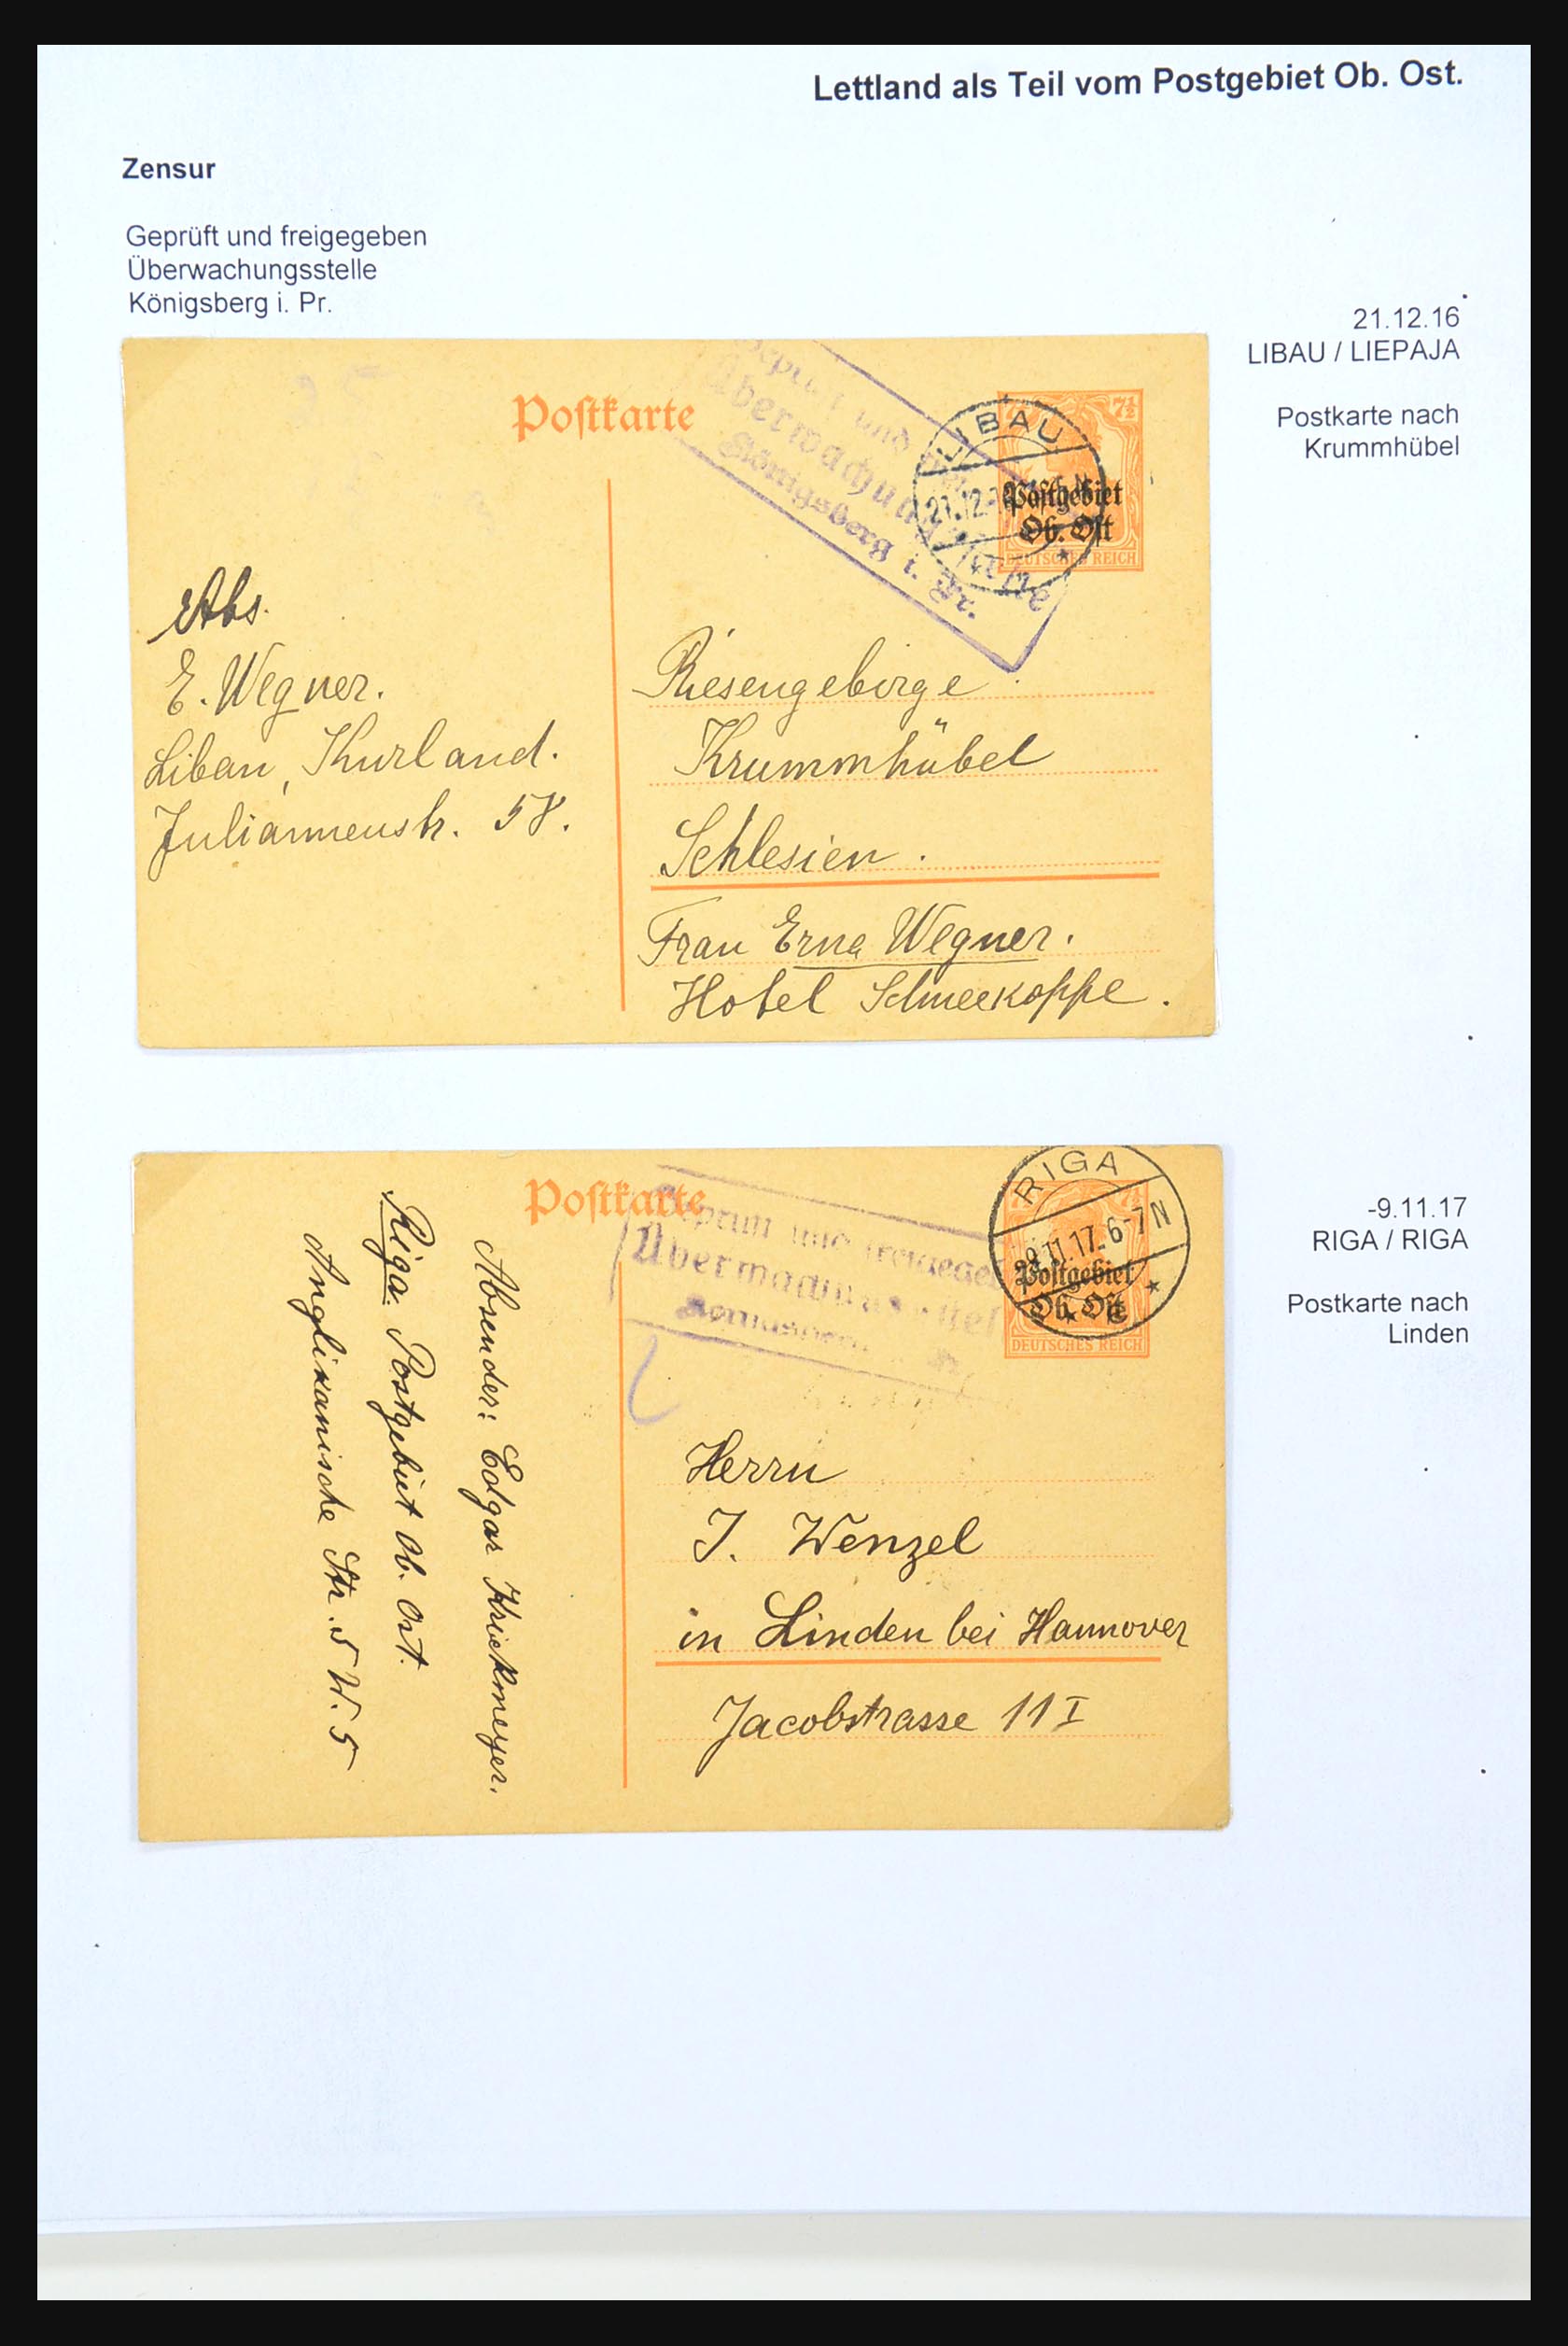 Lettland als Teil vom Postgebiet Ob. Ost.
Zensur
Geprüft und freigegeben
Überwachungsstelle
Königsberg i. Pr.
21.12.16
LIBAU / LIEPAJA
Postkarte nach
Krummhübel
Postkarte
und
Königsberg i. Pr.
LIBAU
21.12.
7½
Postgebiet
Ob. Ost
DEUTSCHES REICH
Abs.
E. Wegner.
Libau, Kurland.
Juliannenstr. 58.
Riesengebirge
Krummhübel
Schlesien.
Frau Erna Wegner.
Hotel Schneekoppe.
-9.11.17
RIGA / RIGA
Postkarte nach
Linden
Postkarte
und
RIGA
-9.11.17. 6-7N
Postgebiet
Ob. Ost
DEUTSCHES REICH
Absender: Edgar Kriekmeyer.
Riga. Postgebiet Ob. Ost.
Anglikanische Str. 5 W. 5
Herrn
J. Wenzel
in Linden bei Hannover
Jacobstrasse 11 I